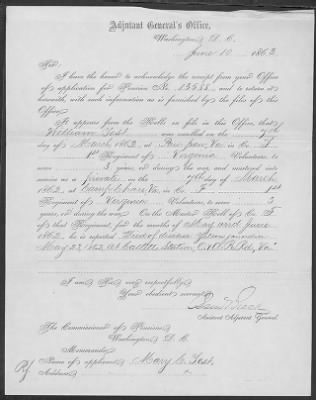 Adjutant General's Office,
Washington, D. C.
June 10 1863
Sir:
I have the honor to acknowledge the receipt from your Office
of application for Pension No. 13588, and to return it
herewith, with such information as is furnished by the files of this
Office.
It appears from the Rolls on file in this Office, that
William Test was enrolled on the 7th
day of March, 1862, at Va., in Co. F
1st Regiment of Virginia Volunteers, to
serve 3 years, or during the war, and mustered into
service as a private, on the 7th day of March
1862, at Camp Chase, Va., in Co. F 1st
Regiment of Virginia Volunteers, to serve 3
years, or during the war. On the Muster Roll of Co. F
of that Regiment, for the months of May and June
1862, he is reported Died of disease
May 22, 1862 at Cattlett Station, O & A R. Rd, Va
I am, Sir, very respectfully,
Your obedient servant,
Assistant Adjutant General.
The Commissioner of Pensions
Washington, D. C.
Memoranda:
Name of applicant, Mary C. Test.
Address,